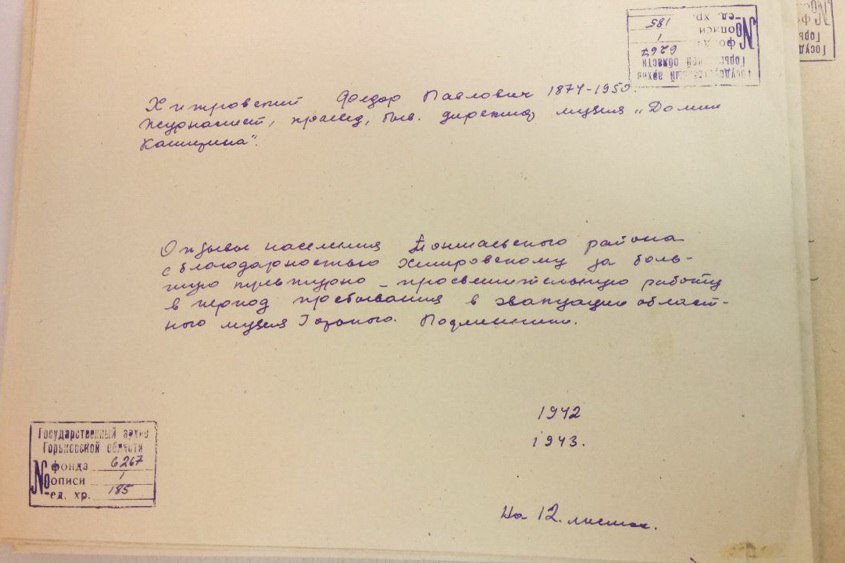 Государственный архив
Горьковской области
№ фонда 6267
описи 1
ед. хр. 185
Хитровский Федор Павлович 1874-1950.
Журналист, краевед, быв. директор музея „Домик
Каширина".
Отзывы населения Тоншаевского района
с благодарностью Хитровскому за боль-
шую культурно-просветительную работу
в период пребывания в эвакуации област-
ного музея Горького. Подлинники.
1942
1943.
Государственный архив
Горьковской области
№ фонда 6267
описи 1
ед. хр. 185
На 12 листах.